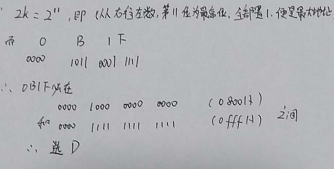 ∵ 2k = 2¹¹, 即 (从右往左数, 第11位为最高位, 全部置1, 便是最大地址
而 0 B 1 F
0000 1011 0001 1111
∴ 0B1F 处在
0000 1000 0000 0000 (0800H)
和 0000 1111 1111 1111 (0fffH) 之间
∴ 选 D